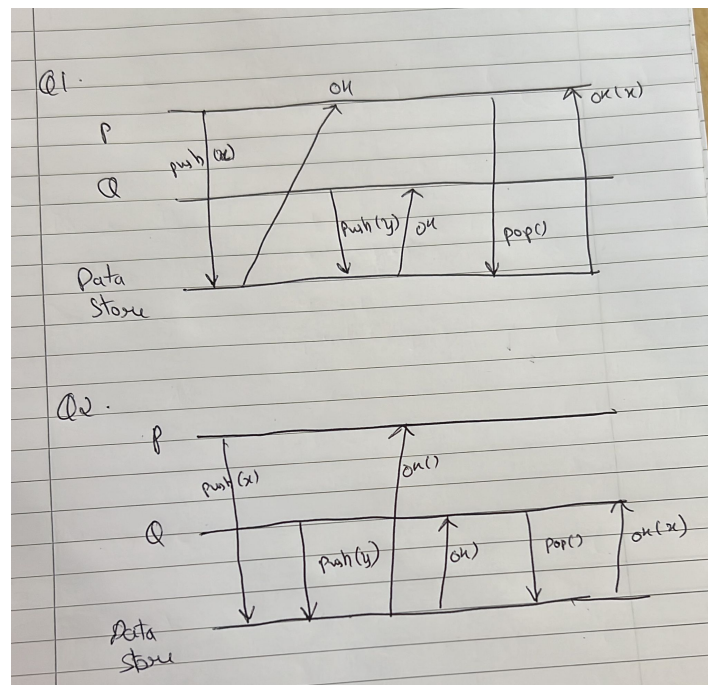 Q1.
OK
OK(x)
P
push(x)
Q
push(y)
OK
pop()
Data
Store
Q2.
P
OK()
push(x)
Q
push(y)
OK)
pop()
OK(x)
Data
Store